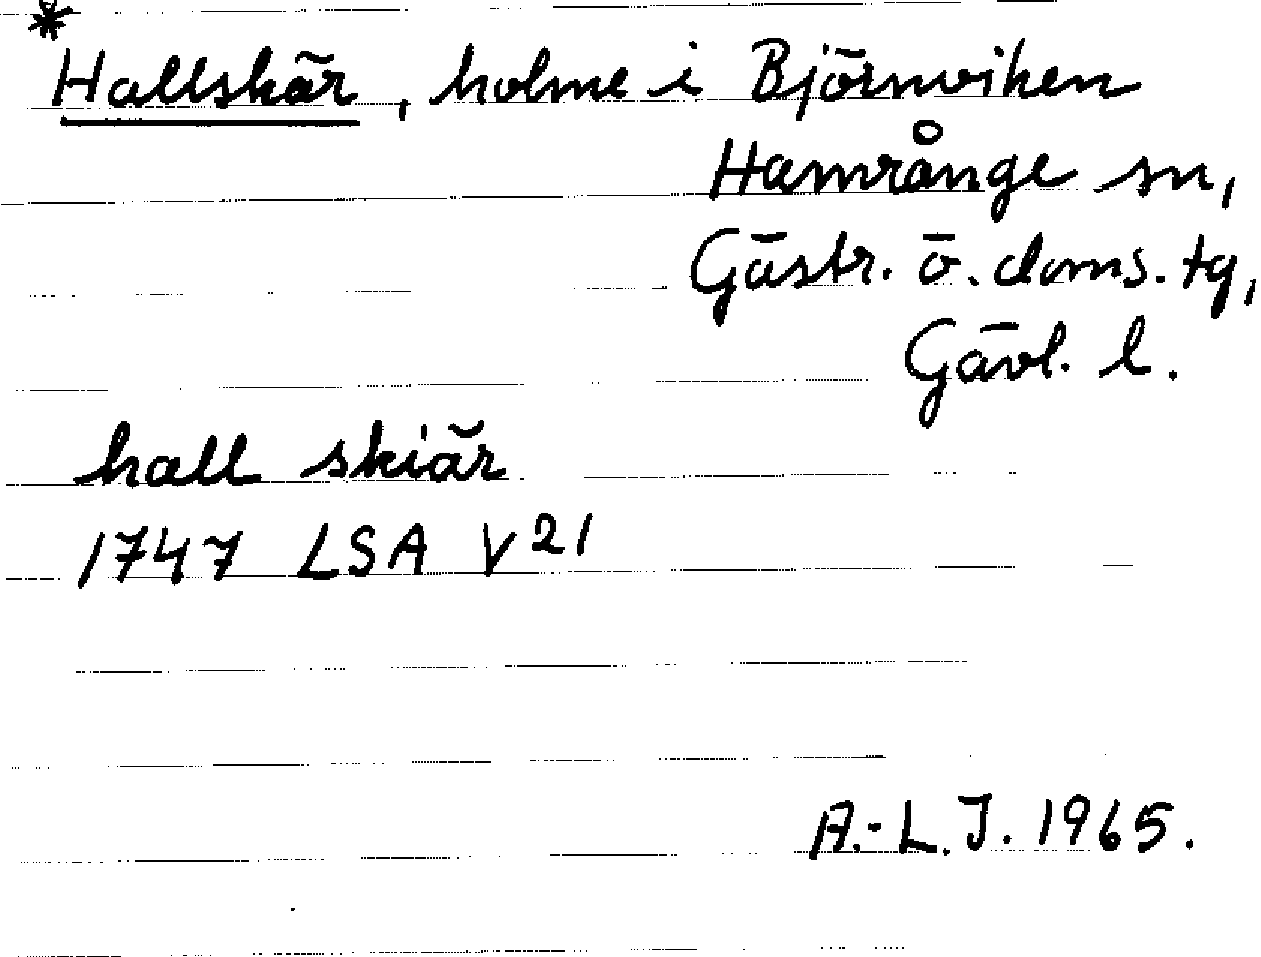 *
Hallskär, holme i Björnviken
Hamrånge sn,
Gästr. ö. doms. tg,
Gävl. l.
hall skiär
1747 LSA V 21
A.-L. J. 1965.